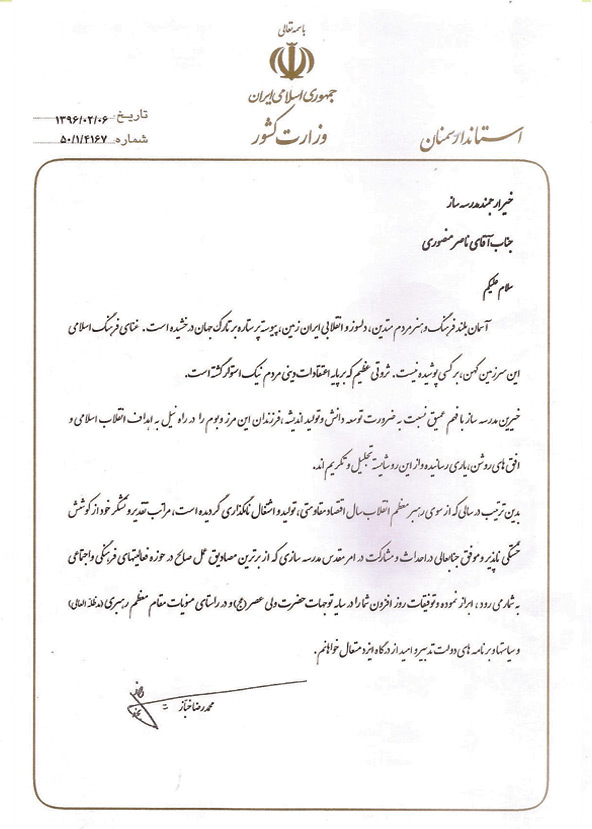 باسمه تعالی
جمهوری اسلامی ایران
وزارت کشور
استانداری سمنان
تاریخ: ۱۳۹۶/۰۲/۰۶
شماره: ۵۰/۱/۴۱۶۷
خیر ارجمند مدرسه ساز
جناب آقای ناصر منصوری
سلام علیکم
آسمان بلند فرهنگ و هنر مردم متدین، دلسوز و انقلابی ایران زمین، پیوسته پر ستاره بر تارک جهان درخشیده است. غنای فرهنگ اسلامی
این سرزمین کهن، بر کسی پوشیده نیست. ثروتی عظیم که بر پایه اعتقادات دینی مردم نیک استوار گشته است.
خیرین مدرسه ساز با فهم عمیق نسبت به ضرورت توسعه دانش و تولید اندیشه، فرزندان این مرز و بوم را در راه نیل به اهداف انقلاب اسلامی و
افق های روشن، یاری رسانیده و از این رو شایسته تجلیل و تکریم اند.
بدین ترتیب در سالی که از سوی رهبر معظم انقلاب سال اقتصاد مقاومتی، تولید و اشتغال نامگذاری گردیده است، مراتب تقدیر و تشکر خود از کوشش
خستگی ناپذیر و موفق جنابعالی در احداث و مشارکت در امر مقدس مدرسه سازی که از برترین مصادیق عمل صالح در حوزه فعالیتهای فرهنگی و اجتماعی
به شمار می رود، ابراز نموده و توفیقات روز افزون شما را در سایه توجهات حضرت ولی عصر (عج) و در راستای منویات مقام معظم رهبری (مدظله العالی)
و سیاستها و برنامه های دولت تدبیر و امید از درگاه ایزد متعال خواهانم.
محمدرضا خباز